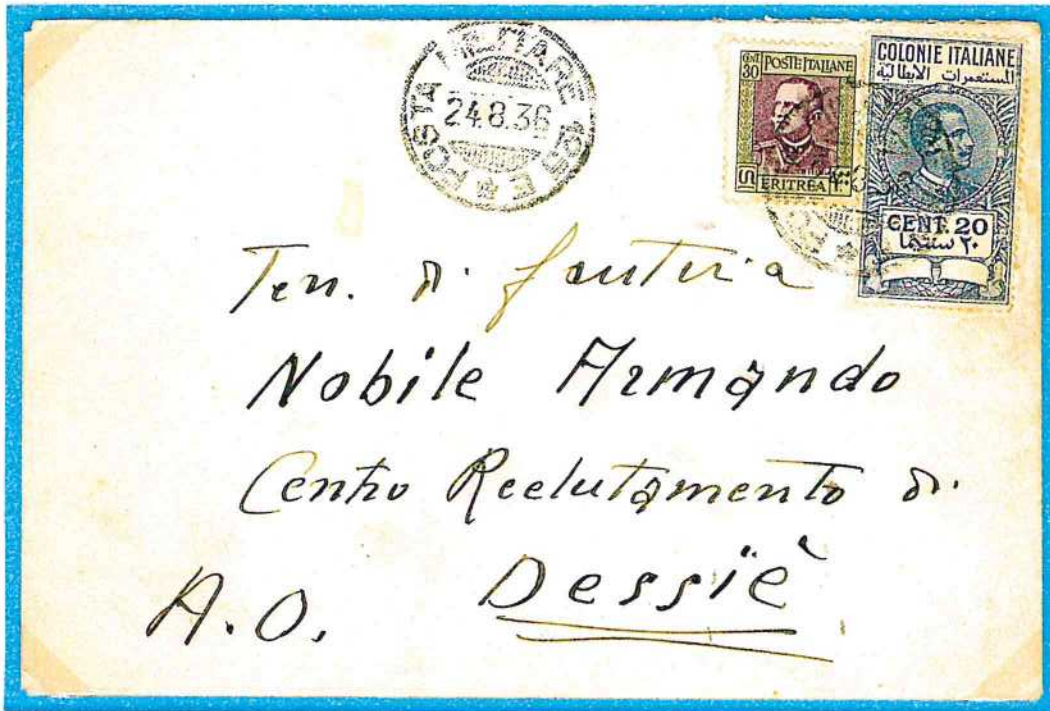 POSTA MILITARE 105 E
24.8.36
CENT 30 POSTE ITALIANE
ERITREA ٣٠
COLONIE ITALIANE
المستعمرات الايطالية
CENT. 20
٢٠ سنتيما
Ten. di fanteria
Nobile Armando
Centro Reclutamento di
A.O. Dessiè